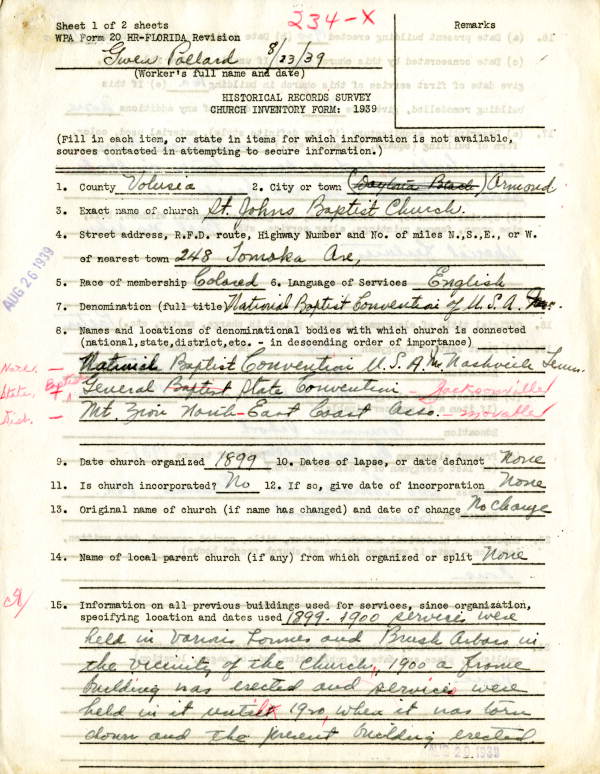 234-X
Sheet 1 of 2 sheets
WPA Form 20 HR-FLORIDA Revision
Remarks
Gwen Pollard 8/23/39
(Worker's full name and date)
HISTORICAL RECORDS SURVEY
CHURCH INVENTORY FORM: 1939
(Fill in each item, or state in items for which information is not available,
sources contacted in attempting to secure information.)
1. County Volusia 2. City or town (Daytona Beach) Ormond
3. Exact name of church St. Johns Baptist Church.
4. Street address, R.F.D. route, Highway Number and No. of miles N.,S.,E., or W.
of nearest town 248 Tomoka Ave,
AUG 26 1939
5. Race of membership Colored 6. Language of Services English
7. Denomination (full title) National Baptist Convention of U.S.A. Inc.
8. Names and locations of denominational bodies with which church is connected
(national,state,district,etc. - in descending order of importance)
National Baptist Convention U.S.A. Nashville Tenn.
State, Baptist General Baptist State Convention - Jacksonville
Dist. - Mt. Zion North-East Coast Asso. - movable
9. Date church organized 1899 10. Dates of lapse, or date defunct None
11. Is church incorporated? No 12. If so, give date of incorporation None
13. Original name of church (if name has changed) and date of change No Change
14. Name of local parent church (if any) from which organized or split None
15. Information on all previous buildings used for services, since organization,
specifying location and dates used 1899-1900 services were
held in various homes and Brush Arbors in
the vicinity of the church, 1900 a frame
building was erected and services were
held in it until 1920, when it was torn
down and the present building erected.
AUG 29 1939